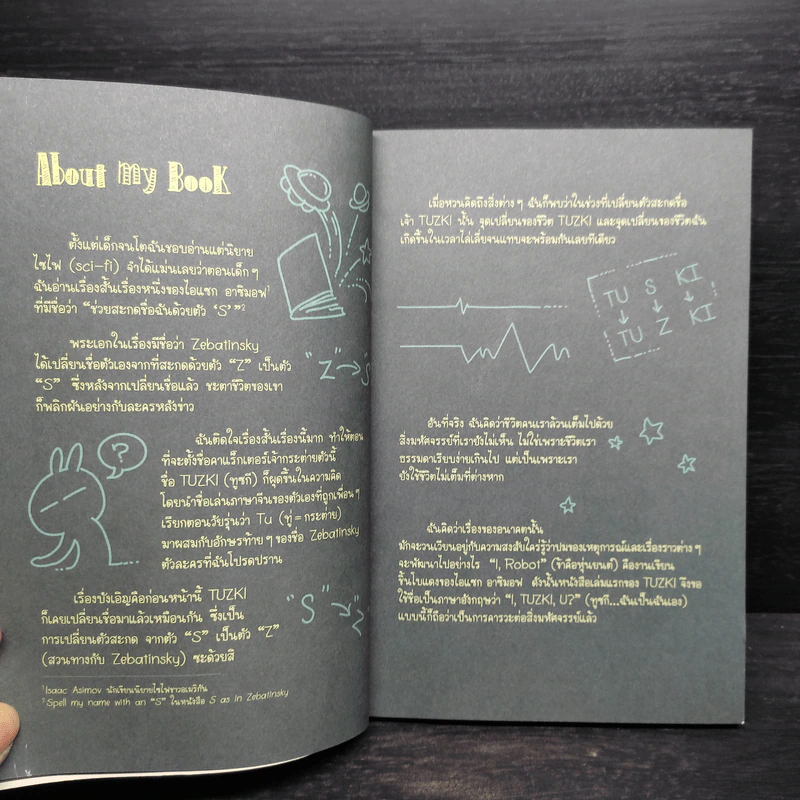 About my Book
ตั้งแต่เด็กจนโตฉันชอบอ่านแต่นิยาย
ไซไฟ (sci-fi) จำได้แม่นเลยว่าตอนเด็กๆ
ฉันอ่านเรื่องสั้นเรื่องหนึ่งของไอแซก อาซิมอฟ¹
ที่มีชื่อว่า “ช่วยสะกดชื่อฉันด้วยตัว ‘S’ ”²
พระเอกในเรื่องมีชื่อว่า Zebatinsky
ได้เปลี่ยนชื่อตัวเองจากที่สะกดด้วยตัว “Z” เป็นตัว
“S” ซึ่งหลังจากเปลี่ยนชื่อแล้ว ชะตาชีวิตของเขา
ก็พลิกผันอย่างกับละครหลังข่าว
“Z”→“S
ฉันติดใจเรื่องสั้นเรื่องนี้มาก ทำให้ตอน
ที่จะตั้งชื่อคาแร็กเตอร์เจ้ากระต่ายตัวนี้
ชื่อ TUZKI (ทูซกี) ก็ผุดขึ้นในความคิด
โดยนำชื่อเล่นภาษาจีนของตัวเองที่ถูกเพื่อนๆ
เรียกตอนวัยรุ่นว่า Tu (ทู่ = กระต่าย)
มาผสมกับอักษรท้ายๆ ของชื่อ Zebatinsky
ตัวละครที่ฉันโปรดปราน
?
เรื่องบังเอิญคือก่อนหน้านี้ TUZKI
ก็เคยเปลี่ยนชื่อมาแล้วเหมือนกัน ซึ่งเป็น
การเปลี่ยนตัวสะกด จากตัว “S” เป็นตัว “Z”
(สวนทางกับ Zebatinsky) ซะด้วยสิ
“S”→“Z
¹Isaac Asimov นักเขียนนิยายไซไฟชาวอเมริกัน
²Spell my name with an “S” ในหนังสือ S as in Zebatinsky
เมื่อหวนคิดถึงสิ่งต่างๆ ฉันก็พบว่าในช่วงที่เปลี่ยนตัวสะกดชื่อ
เจ้า TUZKI นั้น จุดเปลี่ยนของชีวิต TUZKI และจุดเปลี่ยนของชีวิตฉัน
เกิดขึ้นในเวลาไล่เลี่ยจนแทบจะพร้อมกันเลยทีเดียว
TU S KI
↓ ↓ ↓
TU Z KI
อันที่จริง ฉันคิดว่าชีวิตคนเราล้วนเต็มไปด้วย
สิ่งมหัศจรรย์ที่เรายังไม่เห็น ไม่ใช่เพราะชีวิตเรา
ธรรมดาเรียบง่ายเกินไป แต่เป็นเพราะเรา
ยังใช้ชีวิตไม่เต็มที่ต่างหาก
ฉันคิดว่าเรื่องของอนาคตนั้น
มักจะวนเวียนอยู่กับความสงสัยใคร่รู้ว่าปมของเหตุการณ์และเรื่องราวต่างๆ
จะพัฒนาไปอย่างไร “I, Robot” (ข้าคือหุ่นยนต์) คืองานเขียน
ชิ้นโบแดงของไอแซก อาซิมอฟ ดังนั้นหนังสือเล่มแรกของ TUZKI จึงขอ
ใช้ชื่อเป็นภาษาอังกฤษว่า “I, TUZKI, U?” (ทูซกี...ฉันเป็นฉันเอง)
แบบนี้ก็ถือว่าเป็นการคารวะต่อสิ่งมหัศจรรย์แล้ว